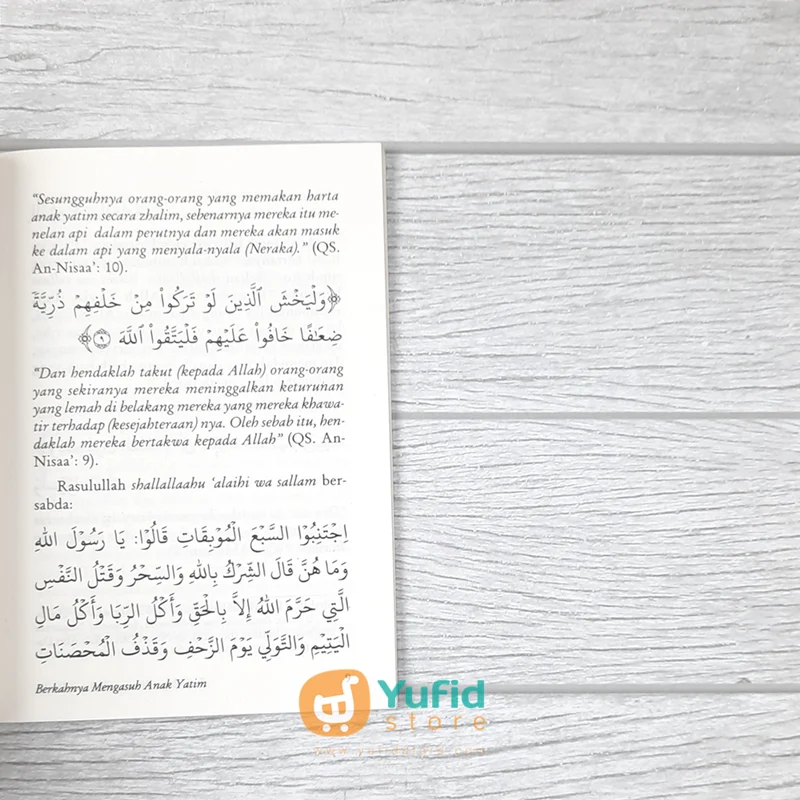 “Sesungguhnya orang-orang yang memakan harta
anak yatim secara zhalim, sebenarnya mereka itu me-
nelan api dalam perutnya dan mereka akan masuk
ke dalam api yang menyala-nyala (Neraka).” (QS.
An-Nisaa’: 10).
﴿وَلْيَخْشَ ٱلَّذِينَ لَوْ تَرَكُوا۟ مِنْ خَلْفِهِمْ ذُرِّيَّةً
ضِعَـٰفًا خَافُوا۟ عَلَيْهِمْ فَلْيَتَّقُوا۟ ٱللَّهَ ۝٩﴾
“Dan hendaklah takut (kepada Allah) orang-orang
yang sekiranya mereka meninggalkan keturunan
yang lemah di belakang mereka yang mereka khawa-
tir terhadap (kesejahteraan) nya. Oleh sebab itu, hen-
daklah mereka bertakwa kepada Allah” (QS. An-
Nisaa’: 9).
Rasulullah shallallaahu ‘alaihi wa sallam ber-
sabda:
اِجْتَنِبُوْا السَّبْعَ الْمُوْبِقَاتِ قَالُوْا: يَا رَسُوْلَ اللهِ
وَمَا هُنَّ قَالَ الشِّرْكُ بِاللهِ وَالسِّحْرُ وَقَتْلُ النَّفْسِ
الَّتِي حَرَّمَ اللهُ إِلاَّ بِالْحَقِّ وَأَكْلُ الرِّبَا وَأَكْلُ مَالِ
الْيَتِيْمِ وَالتَّوَلِّي يَوْمَ الزَّحْفِ وَقَذْفُ الْمُحْصَنَاتِ
Berkahnya Mengasuh Anak Yatim
Yufid
store